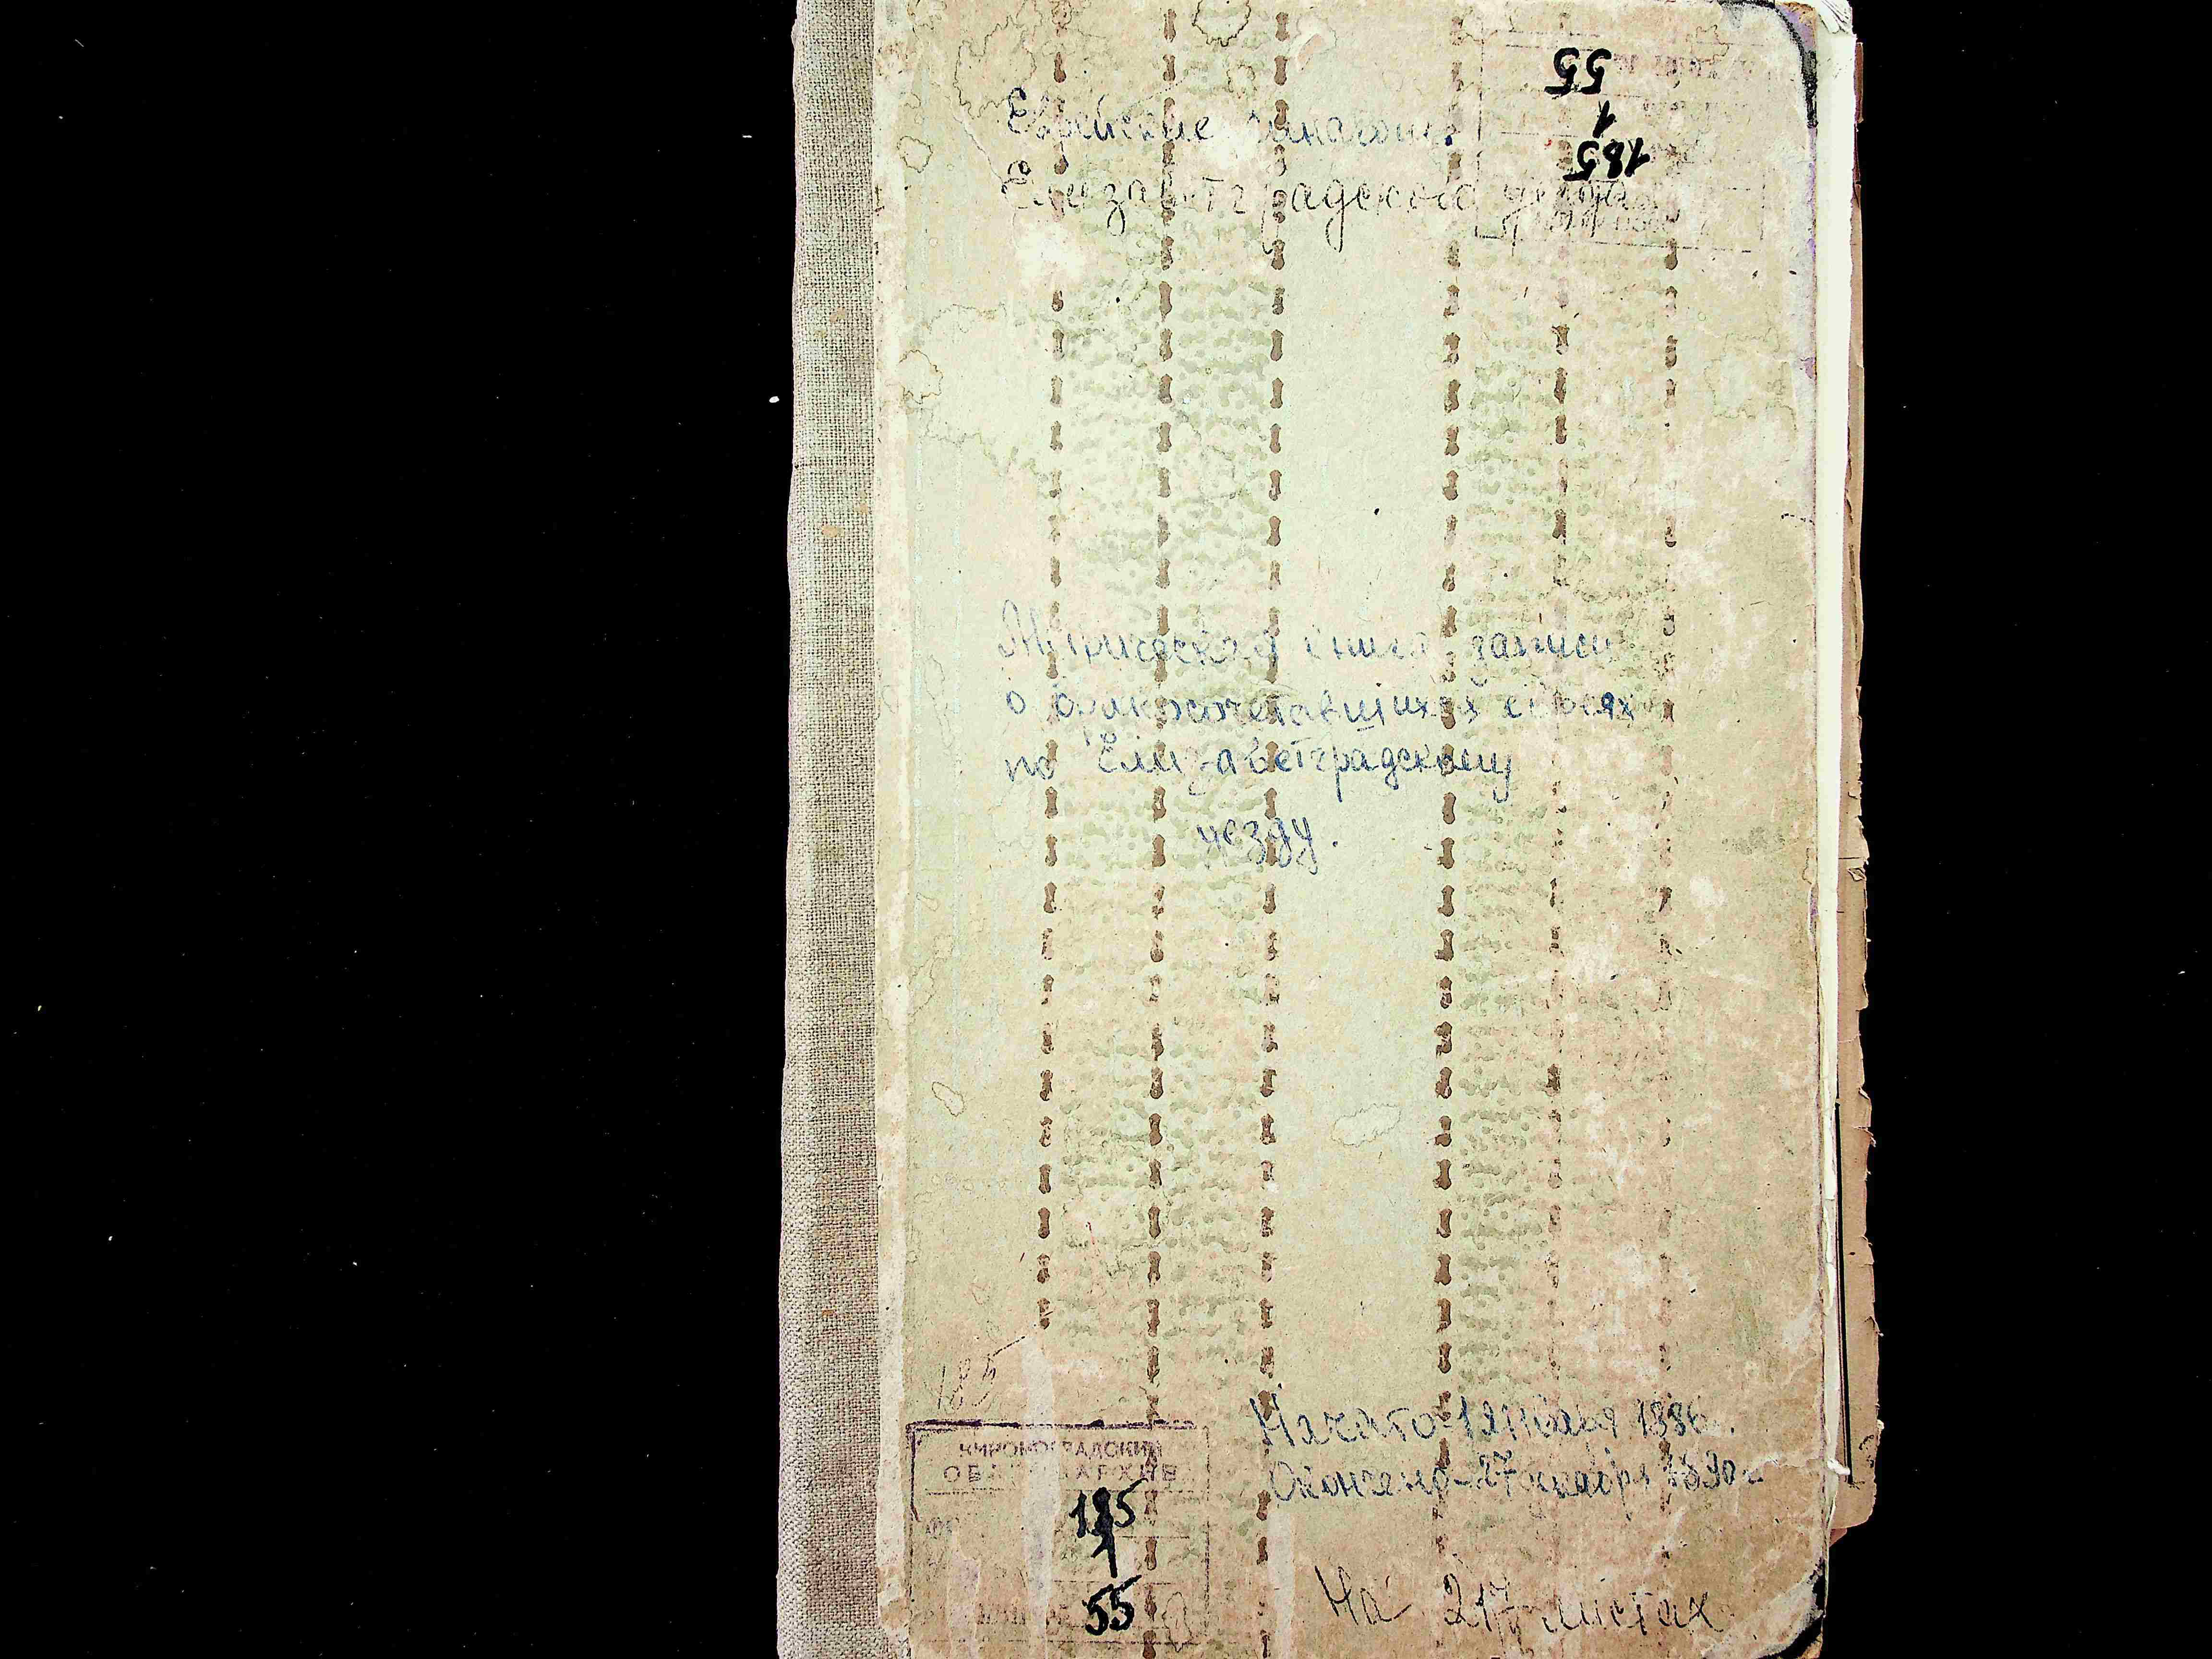 55
1
185
Еврейские синагоги
Елизаветградского уезда
Метрическая книга записи
о бракосочетавшихся евреях
по Елизаветградскому
уезду.
185
Начато - 1 января 1886.
Окончено - 27 декабря 1890 г.
КИРОВОГРАДСКИЙ
ОБЛГОСАРХИВ
185
1
55
На 217 листах